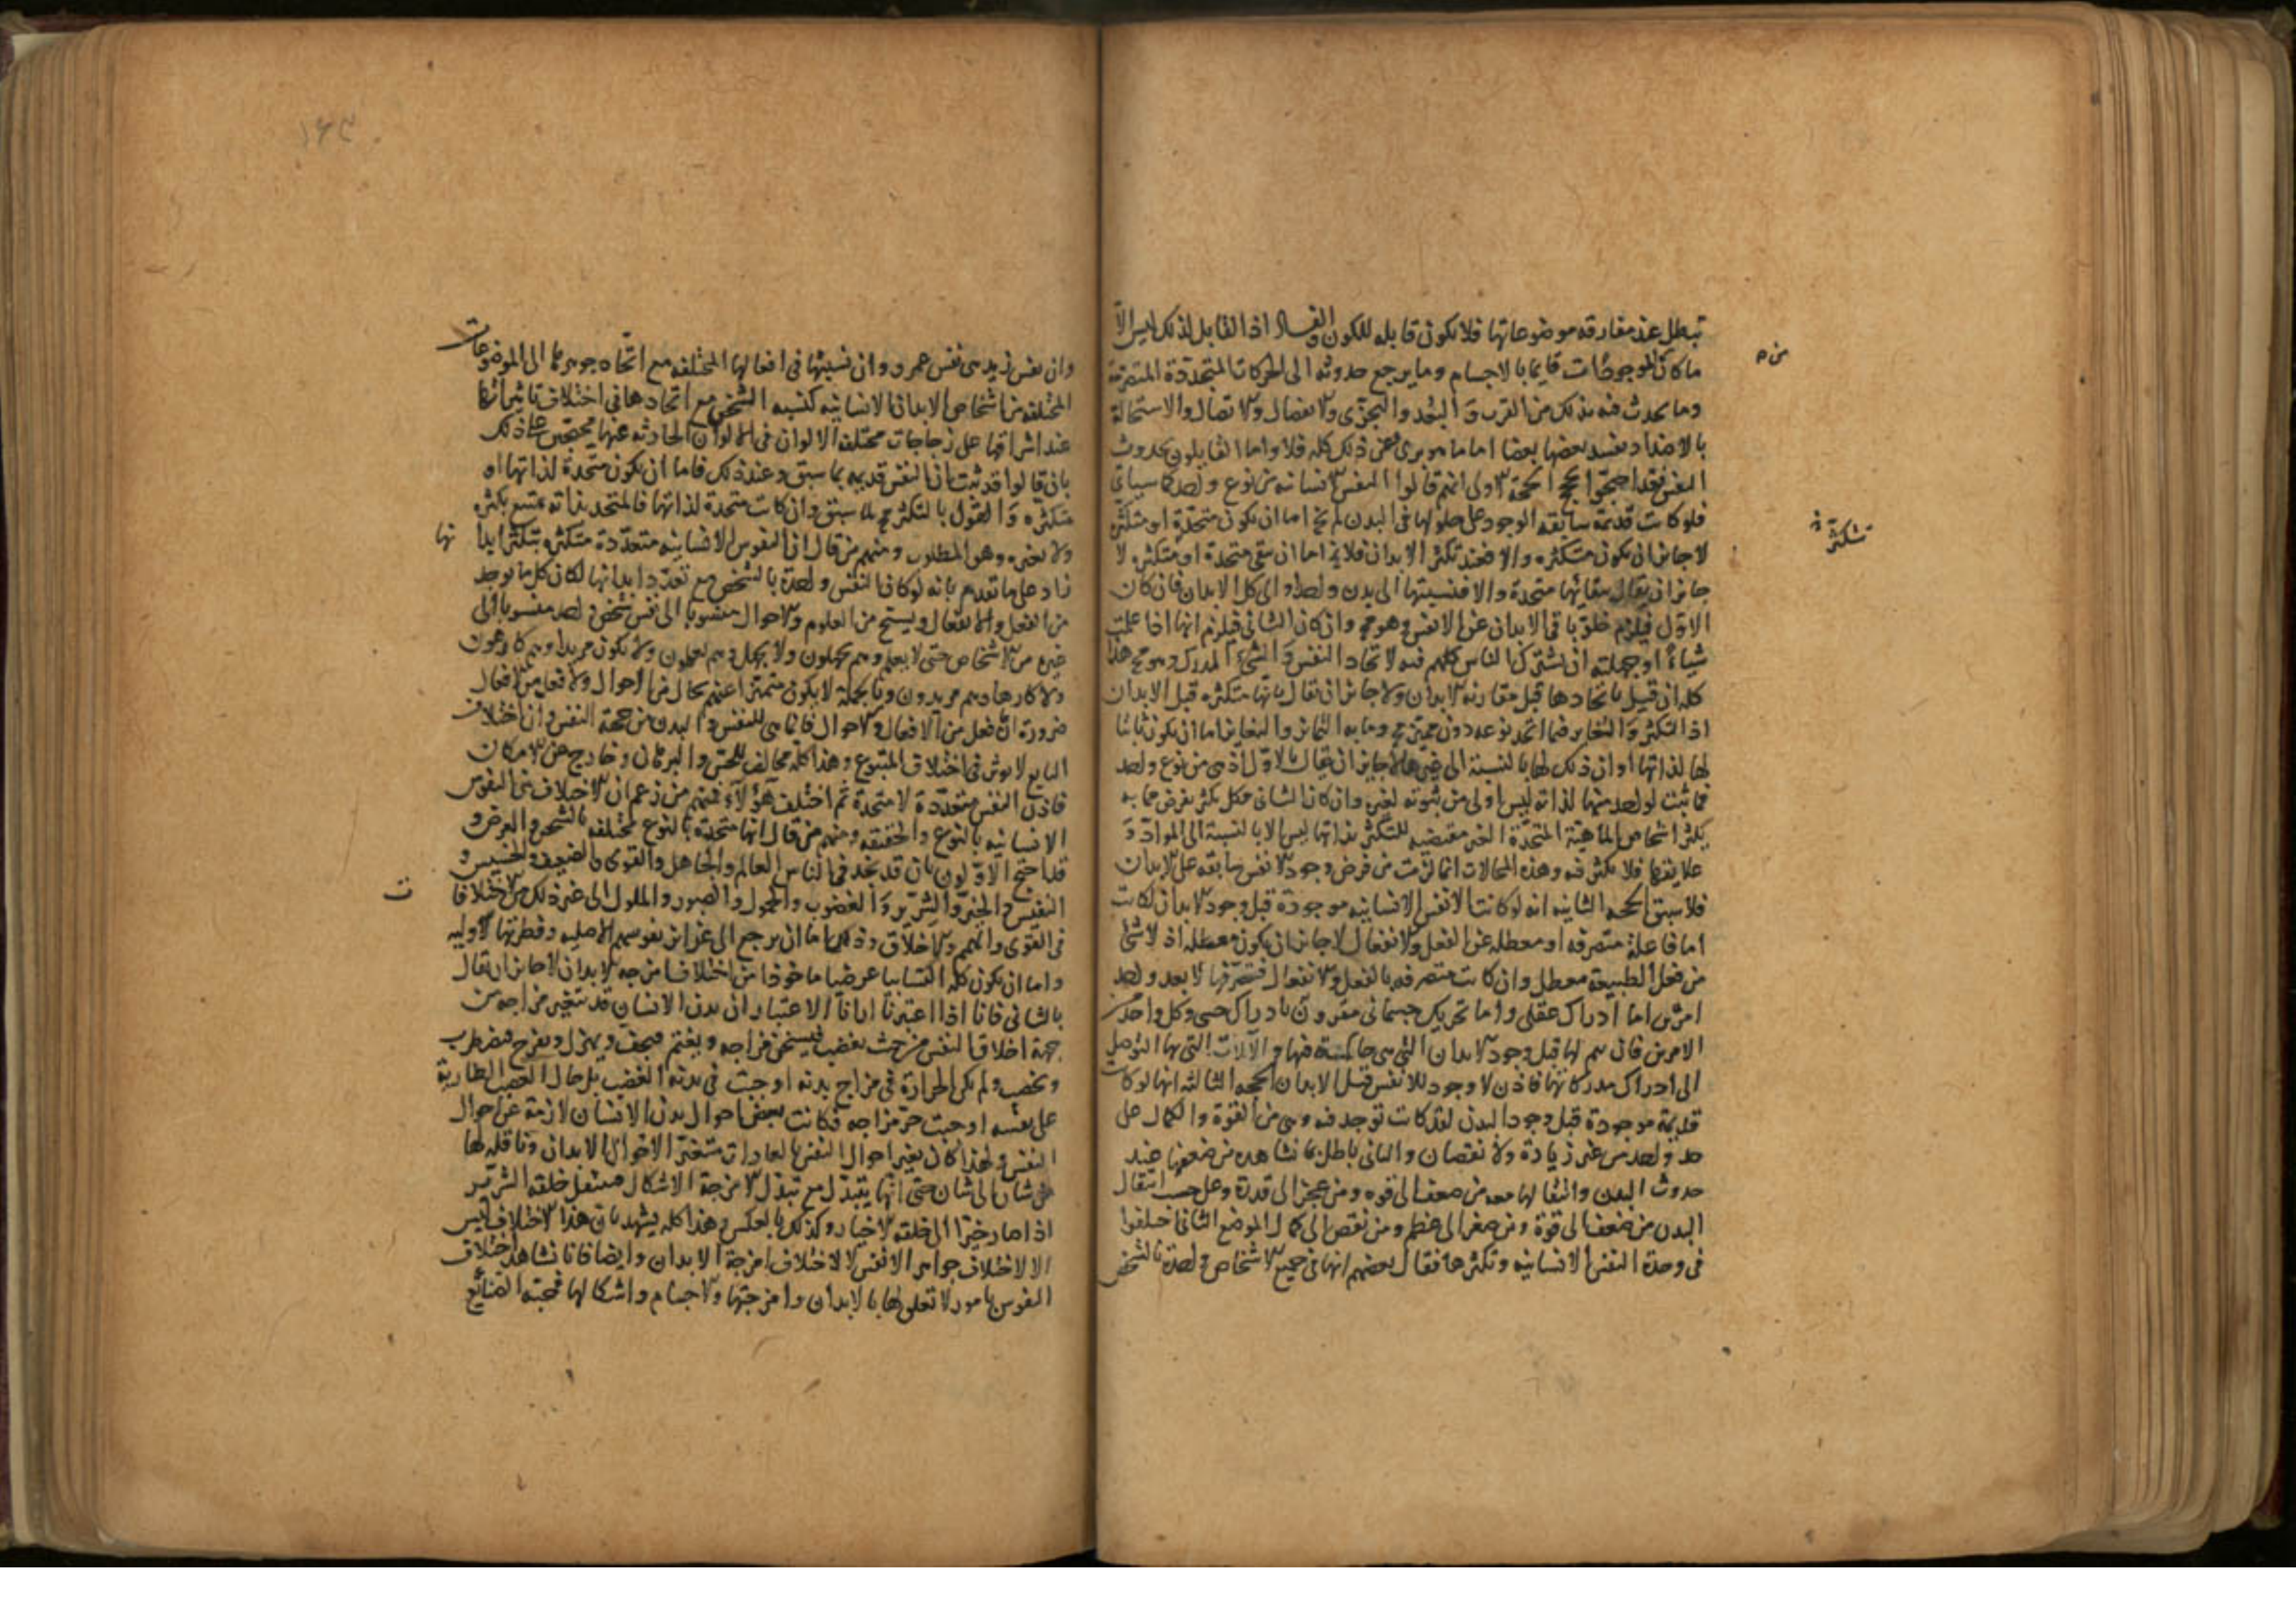 تبطل عند مفارقه موضوعاتها فلا يكون قابله للكون والفساد اذ القابل لذلك ليس الا
ما كان الموجودات قايما بالاجسام وما يرجع حدوثه الى الحركات المتجددة المتصرمة
من ه
وما يحدث فيه بذلك من القرب والبعد والتجزى والانفصال والاتصال والاستحالة
بالاضداد يفسد بعضها بعضا اما ما هو برى عن ذلك كله فلا واما القايلون بحدوث
النفس فقد احتجوا بحجج الحجة الاولى انهم قالوا النفس الانسانيه من نوع واحد كما سياتى
فلو كانت قديمة سابقه الوجود على حلولها فى البدن لم يخ اما ان يكون متحدة او متكثره
لا جايز ان يكون متكثره والا فعند تكثر الابدان فلا يخ اما ان يبقى متحدة او متكثره لا
تتكثر
جايز ان يقال ببقائها متحدة والا فنسبتها الى بدن واحد او الى كل الابدان فان كان
الاول فيلزم خلو باقى الابدان عن الانفس وهو مح وان كان الثانى فيلزم انها اذا علمت
شياءً او جهلته ان يشترك الناس كلهم فيه لاتحاد النفس والشىء المدرك وهو مح هذا
كله ان قيل باتحادها قبل مقارنة الابدان ولا جايز ان يقال بانها متكثره قبل الابدان
اذ التكثر والتغاير فيما اتحد نوعه دون مميز مح وما به التمايز والتغاير اما ان يكون ثابتا
لها لذاتها او ان ذلك لها بالنسبة الى غيرها لا جايز ان يقال بالاول اذ هى من نوع واحد
فما ثبت لواحد منها لذاته ليس اولى من ثبوته لغيره وان كان الثانى فكل تكثر يفرض مما به
يكثر اشخاص الماهية المتحدة الغير مقتضيه للتكثر بذاتها ليس الا بالنسبة الى المواد و
علايقها فلا تكثر فيه وهذه المحالات انما لزمت من فرض وجود الانفس سابقه على الابدان
فلا سبق الحجه الثانيه انه لو كانت الانفس الانسانيه موجودة قبل وجود الابدان لكانت
اما فاعلة متصرفه او معطله عن الفعل والانفعال لا جايز ان يكون معطله اذ لا شئ
من فعل الطبيعة معطل وان كانت متصرفه بالفعل والانفعال فتصرفها لا يعد واحد
امرين اما ادراك عقلى واما تحريك جسمانى مقرون بادراك حسى وكل واحد من
الامرين فان يتم لها قبل وجود الابدان التى هى فيها والآلات التى بها التوصل
الى ادراك مدركاتها فاذن لا وجود للانفس قبل الابدان الحجه الثالثه انها لو كانت
قديمة موجودة قبل وجود البدن لقد كانت توجد فيه وهى من القوة والكمال على
حد واحد من غير زيادة ولا نقصان والتالى باطل بما نشاهده من ضعفها عند
حدوث البدن وانتقالها معه من ضعف الى قوه ومن عجز الى قدرة وعلى حسب انتقال
البدن من ضعف الى قوة ومن صغر الى عظم ومن نقص الى كمال الموضع الثانى اختلفوا
فى وحدة النفس الانسانيه وتكثرها فقال بعضهم انها فى جميع الاشخاص واحدة بالشخص
١٤٣
وان نفس زيد هى نفس عمرو وان نسبتها فى افعالها المختلفه مع اتحاد جوهرها الى الموضوعات
المختلفه من اشخاص الابدان الانسانيه كنسبه الشمس مع اتحادها فى اختلاف تاثيراتها
عند اشراقها على زجاجات مختلفه الالوان فى الالوان الحادثه عنها محتجين على ذلك
بان قالوا قد ثبت ان النفس قديمه بما سبق وعند ذلك فاما ان يكون متحدة لذاتها او
متكثره والقول بالتكثر مح لما سبق وان كانت متحدة لذاتها فالمتحد بذاته يمتنع تكثره
ولا بغيره وهو المطلوب ومنهم من قال ان النفوس الانسانيه متعددة متكثره بتكثر ابدا
نها
زاد على ما تقدم بانه لو كان النفس واحدة بالشخص مع تعدد ابدانها لكان كل ما يوجد
من الفعل والانفعال ويستح من العلوم والاحوال منسوبا الى نفس شخص واحد منسوبا الى
غيره من الاشخاص حتى لا يعلم وهم يجهلون ولا يجهل وهم يعلمون ولا يكون مريدا وهم كارهون
ولا كارها وهم مريدون وبالجملة لا يكون متميزا عنهم بحال من الاحوال ولا فعل من الافعال
ضرورة ان فعل من الافعال والاحوال فانما هى للنفس والبدن من جهة النفس وان اختلاف
التابع لا يوثر فى اختلاف المتبوع وهذا كله مخالف للحس والبرهان وخارج عن الامكان
فاذن النفس متعددة لا متحدة ثم اختلف هؤلاء فمنهم من زعم ان الاختلاف بين النفوس
الانسانيه بالنوع والحقيقه ومنهم من قال انها متحدة بالنوع مختلفه بالشخص والعرض و
قد احتج الاولون بان قد نجد فى الناس العالم والجاهل والقوى والضعيف والخسيس و
النفيس والخير والشرير والغضوب والحمول والصبور والملول الى غير ذلك من الاختلافا
ت
فى القوى والهمم والاخلاق وذلك اما ان يرجع الى غرائز نفوسهم الاصليه وفطرتها الاوليه
واما ان يكون كله اكتسابيا عرضيا ماخوذا من اختلاف امزجه الابدان لا جايز ان يقال
بالثانى فانا اذا اعتبرنا ارانا الاعتبار ان بدن الانسان قد يتغير مزاجه من
جهة اخلاق النفس من حيث يغضب فيسخن مزاجه ويغتم فيجف ويهزل ويفرح فيرطب
ويخصب ولم تكن الحرارة فى مزاج بدنه اوجبت فى بدنه الغضب بل حال الغضب الطارية
على نفسه اوجبت حر مزاجه فكانت بعض احوال بدن الانسان لازمة عن احوال
النفس ولهذا كان بغير احوال النفس بالعادات تتغير الاحوال الابدان وناقله لها
من شان الى شان حتى انها يتبدل مع تبدل الامزجة الاشكال فتنتقل خلقه الشرير
اذا صار خيرا الى خلقه الاخيار وكذلك بالعكس وهذا كله يشهد بان هذا الاختلاف ليس
الا لاختلاف جواهر الانفس لا لاختلاف امزجة الابدان وايضا فانا نشاهد اختلاف
النفوس بامور لا تعلق لها بالابدان وامزجتها والاجسام واشكالها فمحبة الصنائع